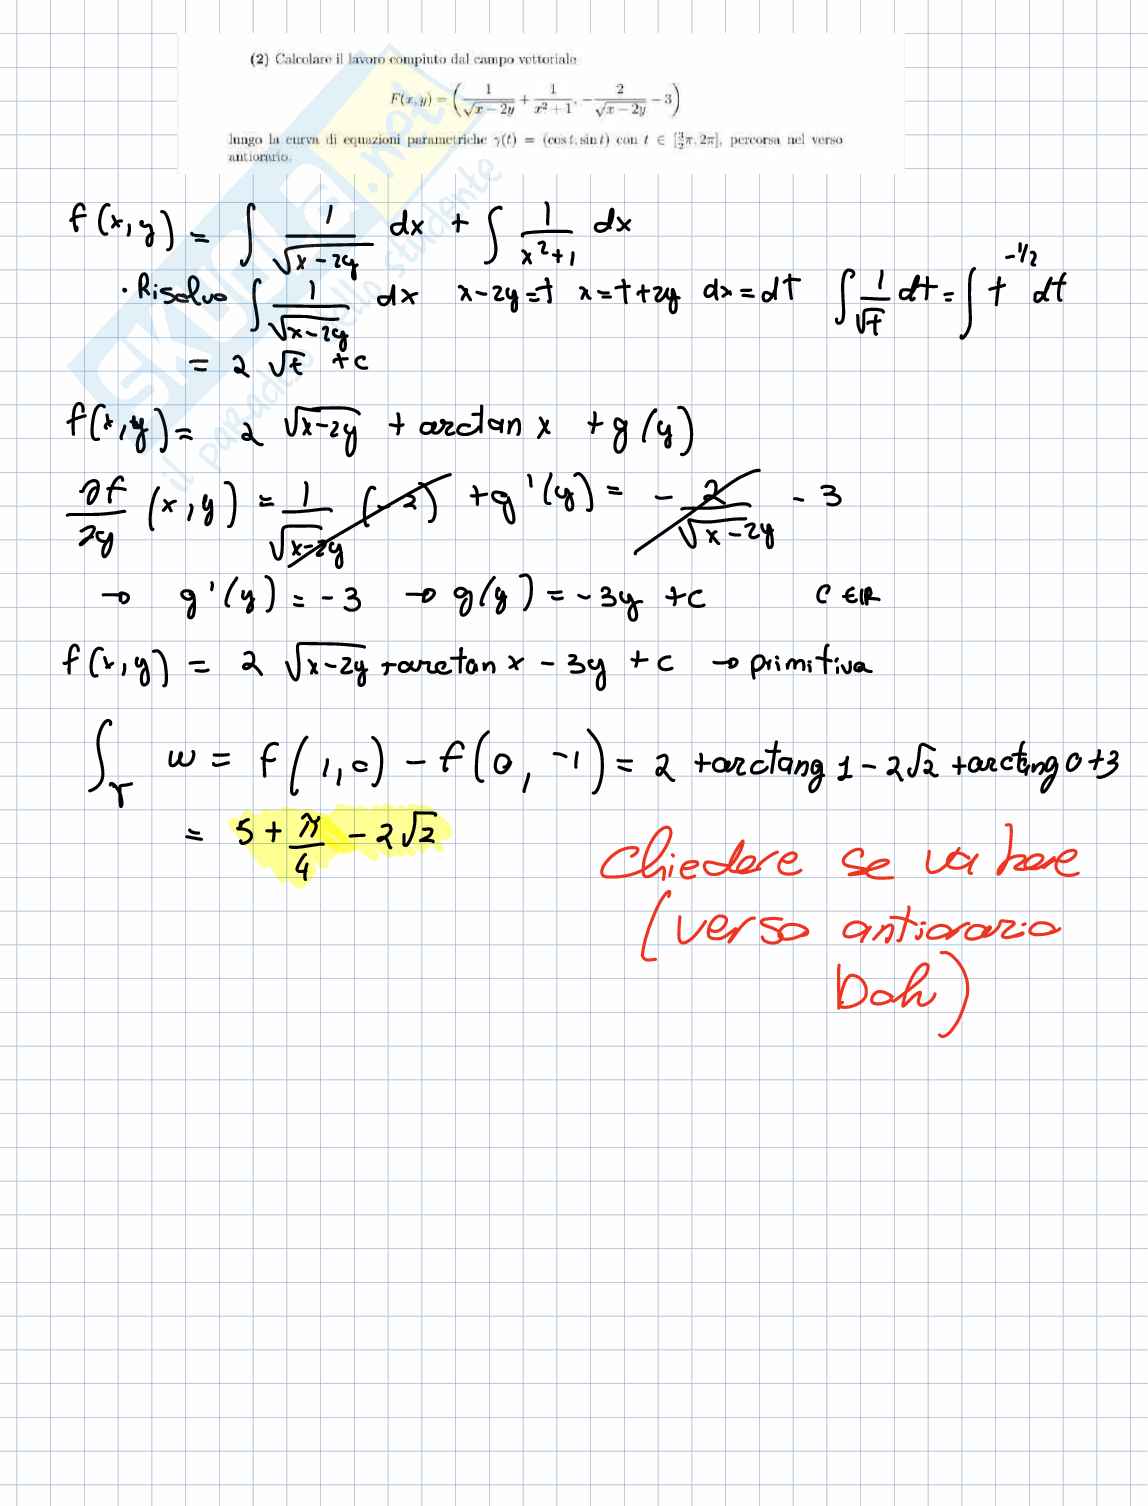 (2) Calcolare il lavoro compiuto dal campo vettoriale
F(x, y) = ( 1/√(x − 2y) + 1/(x² + 1), − 2/√(x − 2y) − 3 )
lungo la curva di equazioni parametriche γ(t) = (cos t, sin t) con t ∈ [3/2 π, 2π], percorsa nel verso
antiorario.
f(x,y) = ∫ 1/√(x-2y) dx + ∫ 1/(x²+1) dx
· Risolvo ∫ 1/√(x-2y) dx x-2y=t x=t+2y dx=dt ∫ 1/√t dt = ∫ t^(-1/2) dt
= 2 √t + c
f(x,y) = 2 √(x-2y) + arctan x + g(y)
∂f/∂y (x,y) = 1/√(x-2y) (-2) + g'(y) = - 2/√(x-2y) - 3
→ g'(y) = -3 → g(y) = -3y + c C ∈ ℝ
f(x,y) = 2 √(x-2y) + arctan x - 3y + c → primitiva
∫γ w = f(1,0) - f(0,-1) = 2 + arctang 1 - 2√2 + arctang 0 + 3
= 5 + π/4 - 2√2
Chiedere se va bene
(verso antiorario
Boh)
SKUOLA.net
il paradiso dello studente